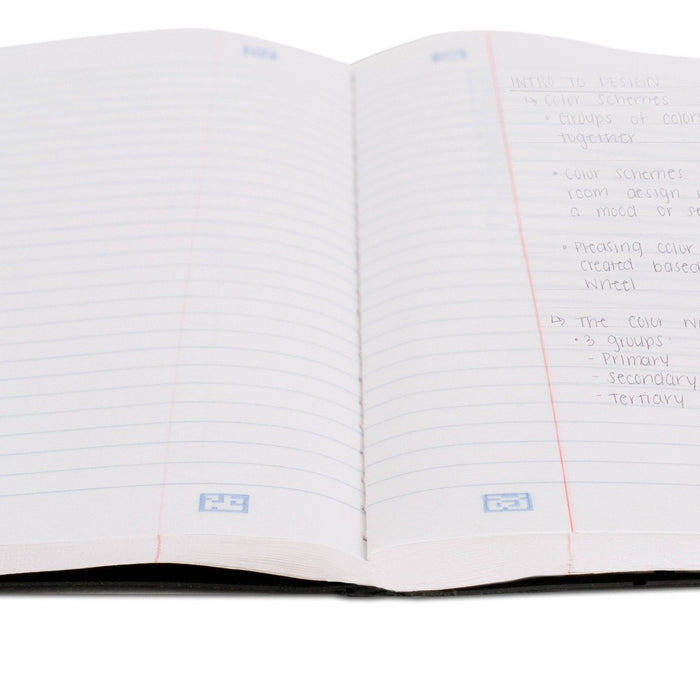 INTRO TO DESIGN
↳ Color schemes
• Groups of colors
together
• Color schemes
room design
a mood or
• Pleasing color
created based
wheel
↳ The color
• 3 groups:
- Primary
- Secondary
- Tertiary